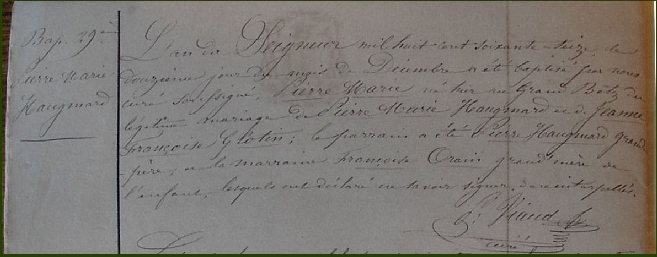 Bap. 29me
Pierre Marie
Haugmard
L'an du Seigneur mil huit cent soixante-seize, le
douzième jour du mois de Décembre a été baptisé par nous
curé soussigné, Pierre Marie né hier au Grand Betz du
légitime mariage de Pierre Marie Haugmard et de Jeanne
Françoise Glotin; le parrain a été Pierre Haugmard grand
père, et la marraine Françoise Orain grand'mère de
l'enfant, lesquels ont déclaré ne savoir signer, de ce interpellés.
Viaud
curé